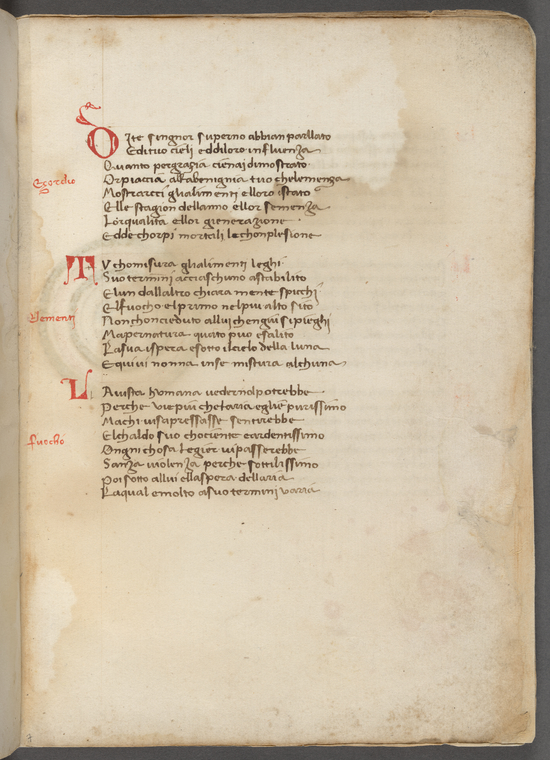 Dite singnor superno abbian parllato
Editvo cieli eddiloro influenza
Quanto pergrazia cienai dimostrato
Exordio
Orpiaccia allabenignia tvo chelemenza
Mostrarcci glialimenti elloro istato
Elle stagion dellanno ellor semenza
Lorqualita ellor gienerazione
Eddechorpi mortali lechonplesione
Tv chomisura glialimenti leghi
Svo termini acciaschuno astabilito
Elun dallaltro chiara mente spieghi
Elementi
Elfuocho elprimo nelpiu alto sito
Nonchonceduto allui chengiu sipieghi
Mapernatura quato puo esalito
Lasua ispera esotto ilcielo della luna
Equivi nonna inse mistura alchuna
La vista hvmana vedernolpotrebbe
Perche vie piu chellaria eglie purissimo
Machi visapressasse sentirebbe
fuocho
Elchaldo svo chociente eardentissimo
Ongni chosa legier vipasserebbe
Sanza violenza perche sottilissimo
Poi sotto allui ellaspera dellaria
Laqual emolto asvo termini varia